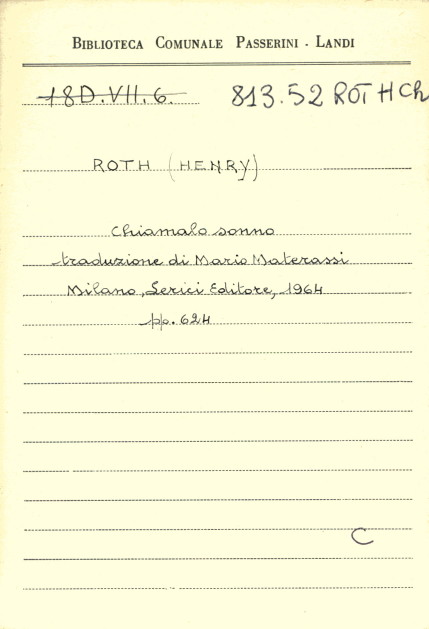 BIBLIOTECA COMUNALE PASSERINI - LANDI
18D.VII.6. 813.52 ROT H Ch
ROTH (HENRY)
Chiamalo sonno
traduzione di Mario Materassi
Milano, Lerici Editore, 1964
pp. 624
C